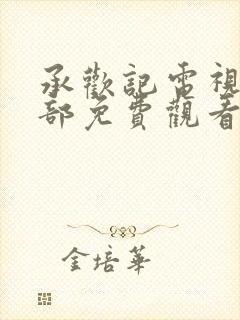 承歡記電視
部免費觀看
金培華